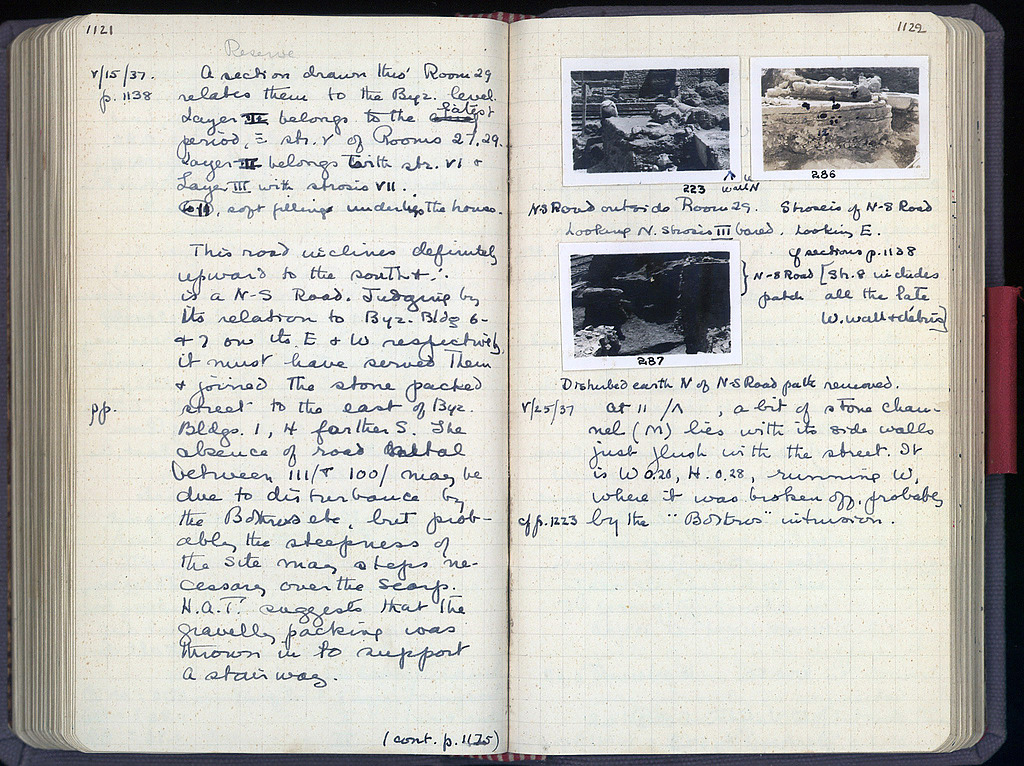 1121
Reserve
V/15/37. A section drawn thro' Room 29
p. 1138 relates them to the Byz. level.
Layer belongs to the latest
period, = str. V of Rooms 27, 29.
Layer II belongs with str. VI +
Layer III with strosis VII.
soft filling underlies the house.
This road inclines definitely
upward to the south + ∴
is a N-S Road. Judging by
its relation to Byz. Bldg 6-
+ 7 on its E + W respectively,
it must have served them
+ joined the stone packed
pp. street to the east of Byz.
Bldgs. 1, 4 farther S. The
absence of road metal
between 111/T 100/ may be
due to disturbance by
the Bothros etc, but prob-
ably the steepness of
the site may steps ne-
cessary over the scarp.
H.A.T. suggests that the
gravelly packing was
thrown in to support
a stairway.
(cont. p. 1175)
1122
223 wall N
286
N-S Road outside Room 29. Stroseis of N-S Road
Looking N. Strosis III bared. Looking E.
cf sections p. 1138
N-S Road [Str. 8 includes
patch all the late
W. wall + debris]
287
Disturbed earth N of N-S Road path removed.
V/25/37 at 11 /Λ , a bit of stone chan-
nel (M) lies with its side walls
just flush with the street. It
is W 0.20, H. 0.28, running W,
where it was broken off, probably
cf p. 1223 by the "Bothros" intrusion.